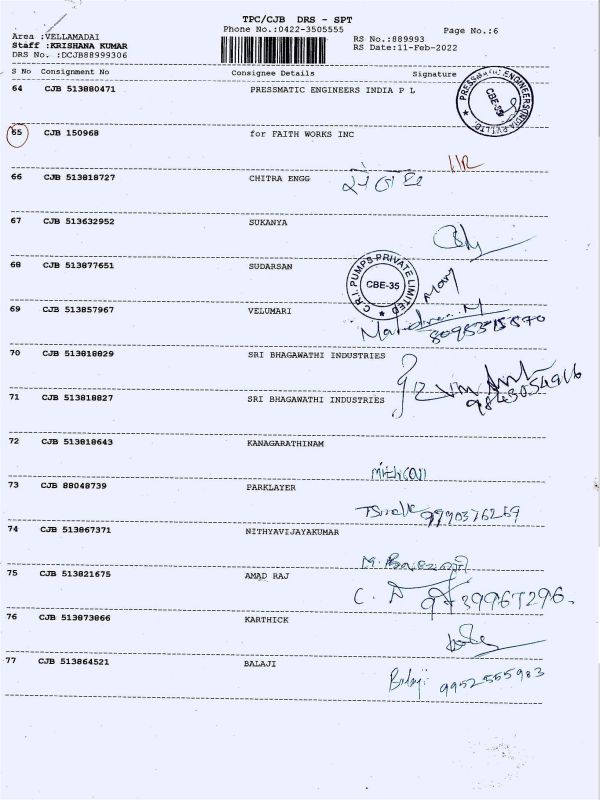 TPC/CJB DRS - SPT
Phone No.:0422-3505555
Page No.:6
Area :VELLAMADAI
Staff :KRISHANA KUMAR
DRS No. :DCJB88999306
RS No.:889993
RS Date:11-Feb-2022
S No Consignment No Consignee Details Signature
64 CJB 513880471 PRESSMATIC ENGINEERS INDIA P L
PRESSMATIC ENGINEERS INDIA PVT. LTD.
CBE-35
65 CJB 150968 for FAITH WORKS INC
66 CJB 513818727 CHITRA ENGG
67 CJB 513632952 SUKANYA
68 CJB 513877651 SUDARSAN
C.R.I. PUMPS PRIVATE LIMITED
CBE-35
Mary
69 CJB 513857967 VELUMARI
70 CJB 513818829 SRI BHAGAWATHI INDUSTRIES
71 CJB 513818827 SRI BHAGAWATHI INDUSTRIES
9843054916
72 CJB 513818643 KANAGARATHINAM
73 CJB 88048739 PARKLAYER
74 CJB 513867371 NITHYAVIJAYAKUMAR
75 CJB 513821675 AMAD RAJ
76 CJB 513873866 KARTHICK
77 CJB 513864521 BALAJI
Balaji 9952555983